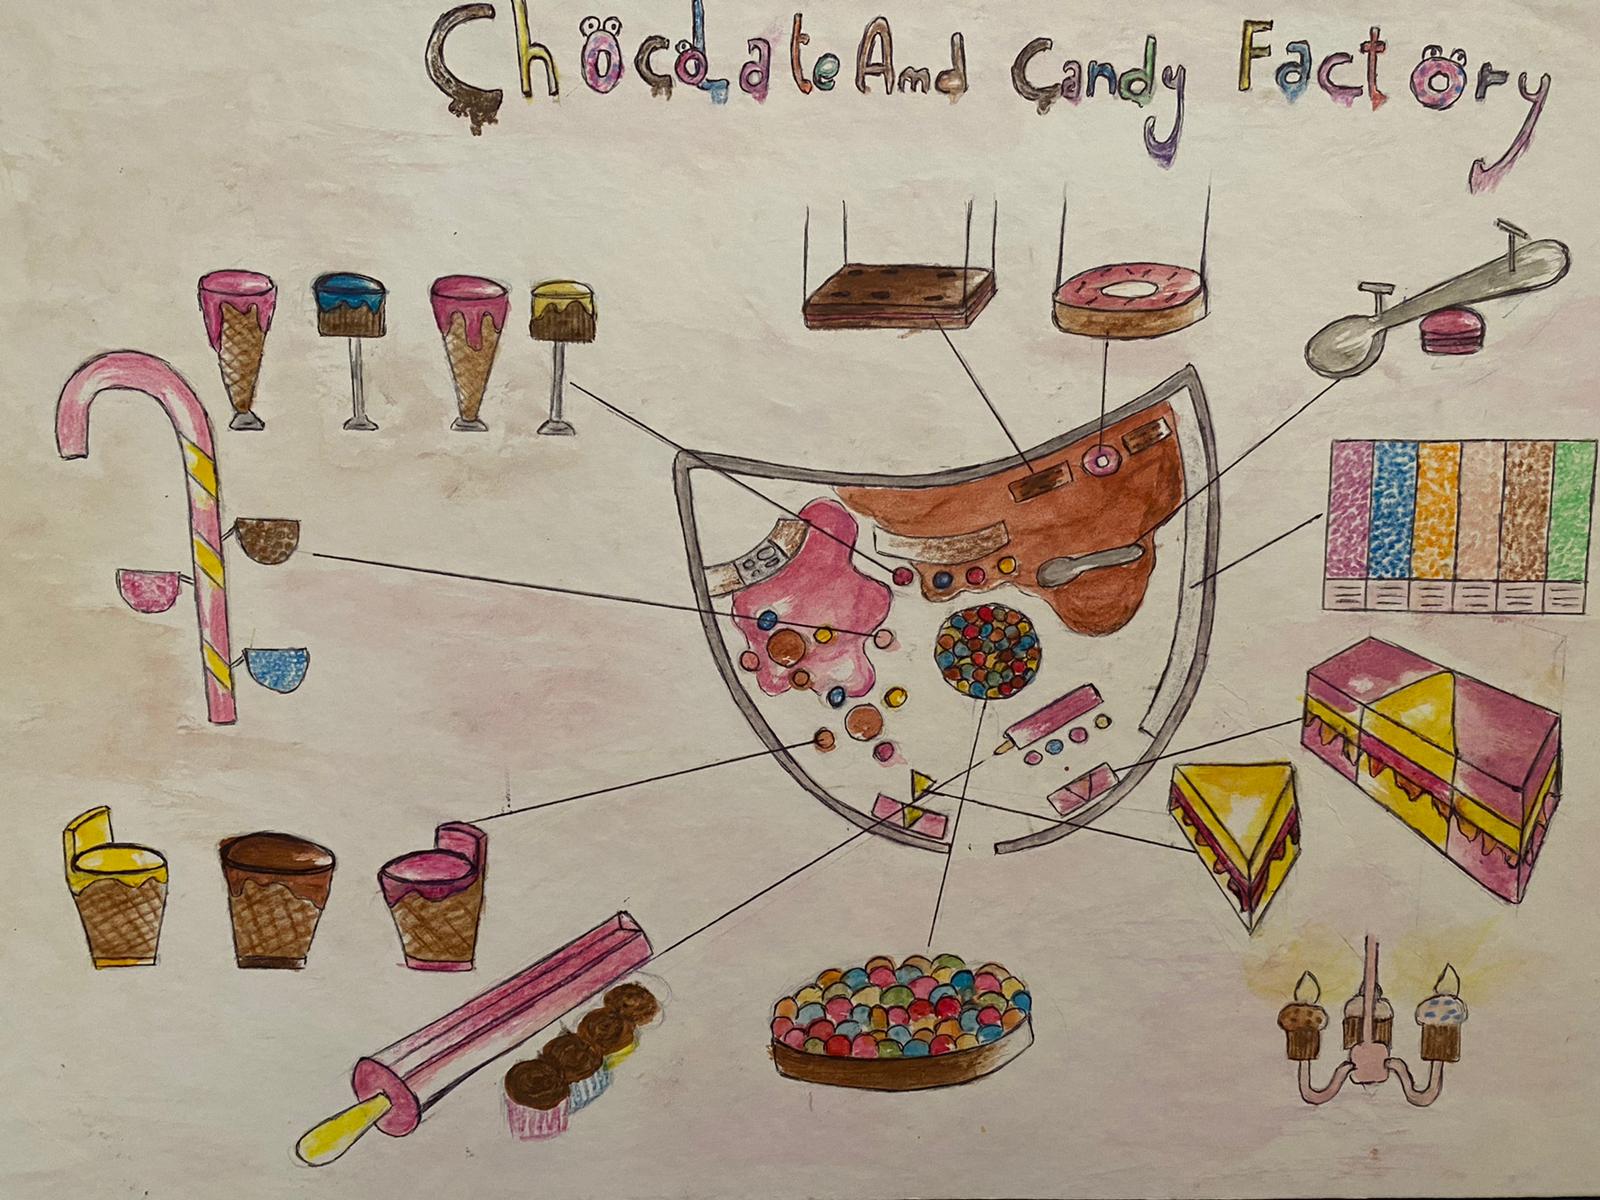 Chocolate Amd Candy Factory